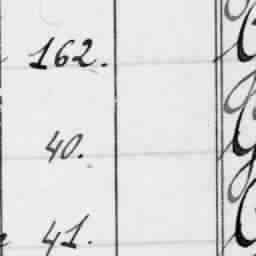 162.
40.
41.